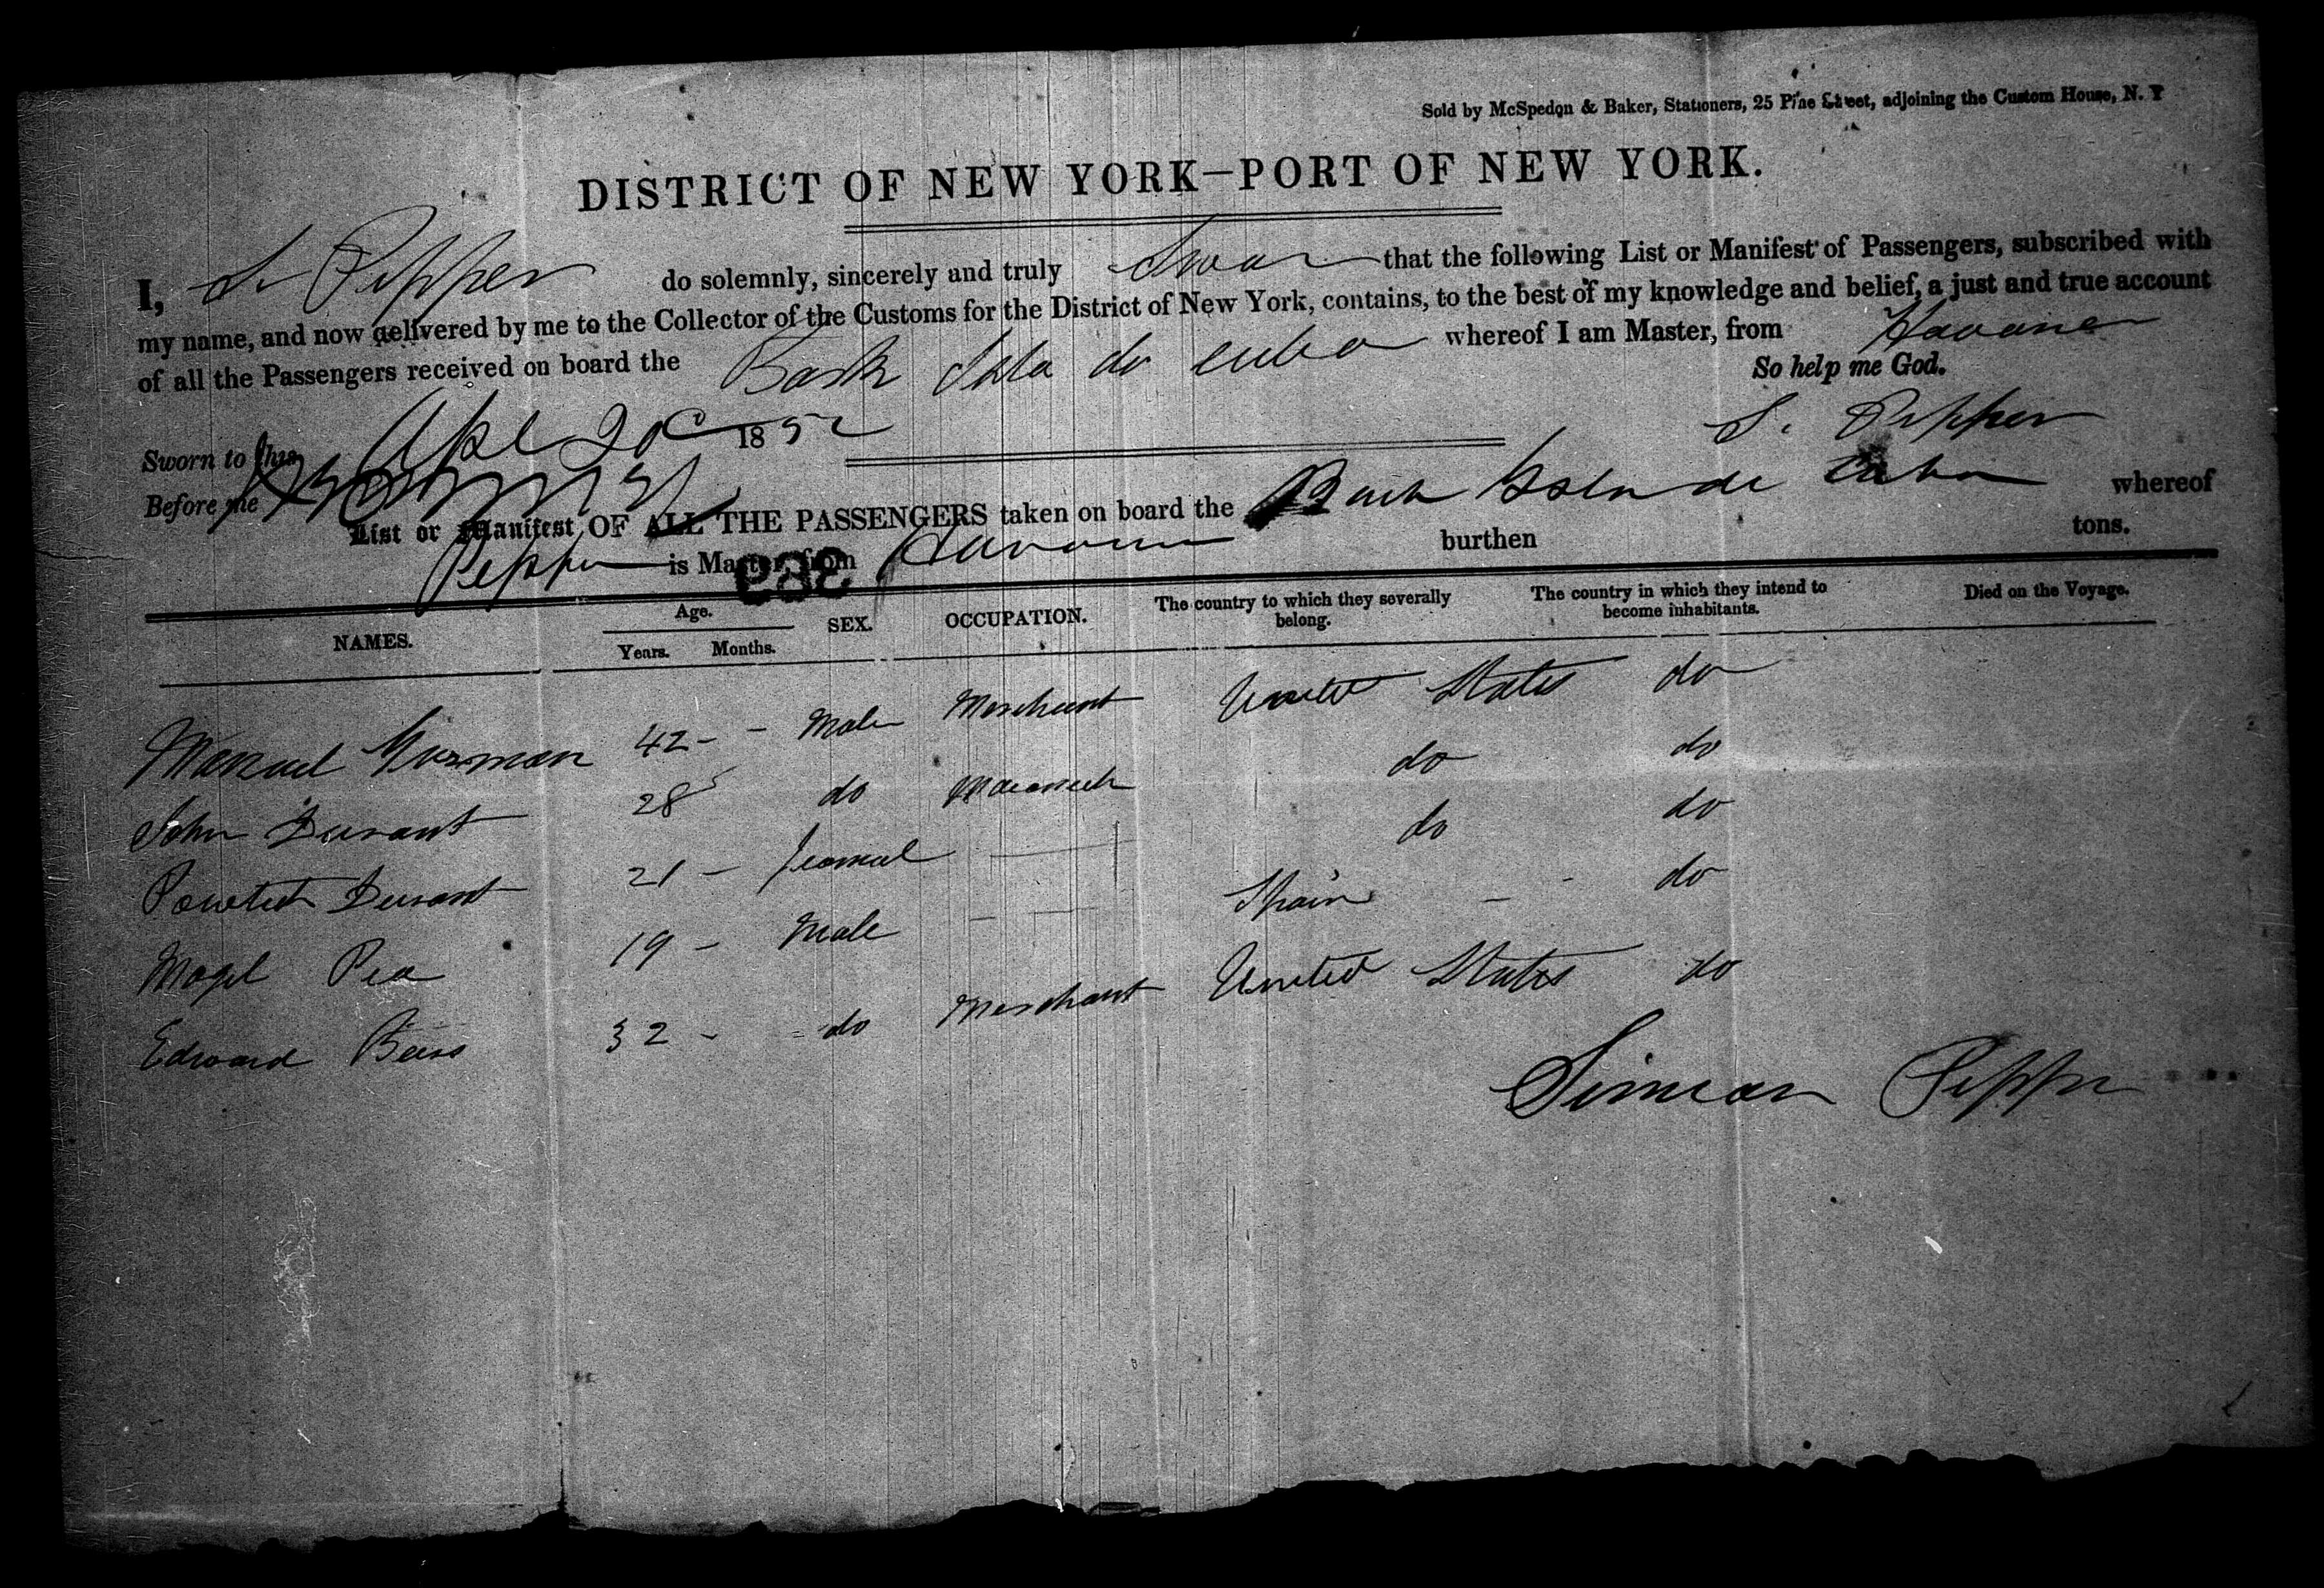 Sold by McSpedon & Baker, Stationers, 25 Pine Street, adjoining the Custom House, N. Y
DISTRICT OF NEW YORK—PORT OF NEW YORK.
I, S Pepper do solemnly, sincerely and truly Swear that the following List or Manifest of Passengers, subscribed with
my name, and now delivered by me to the Collector of the Customs for the District of New York, contains, to the best of my knowledge and belief, a just and true account
of all the Passengers received on board the Bark Isla de Cuba whereof I am Master, from Havana
So help me God.
Sworn to this Apl 20 1852
S. Pepper
Before me
List or Manifest OF ALL THE PASSENGERS taken on board the Bark Isla de Cuba whereof
Pepper is Master, from Havana burthen tons.
369
NAMES. Age. Years. Months. SEX. OCCUPATION. The country to which they severally belong. The country in which they intend to become inhabitants. Died on the Voyage.
Manuel Gusman 42 - - Male Merchant United States do
John Durant 28 do do do
Durant 21 - Femal — do do
Pea 19 - Male — Spain - - do
Edward 32 - - do Merchant United States do
Simeon Pepper